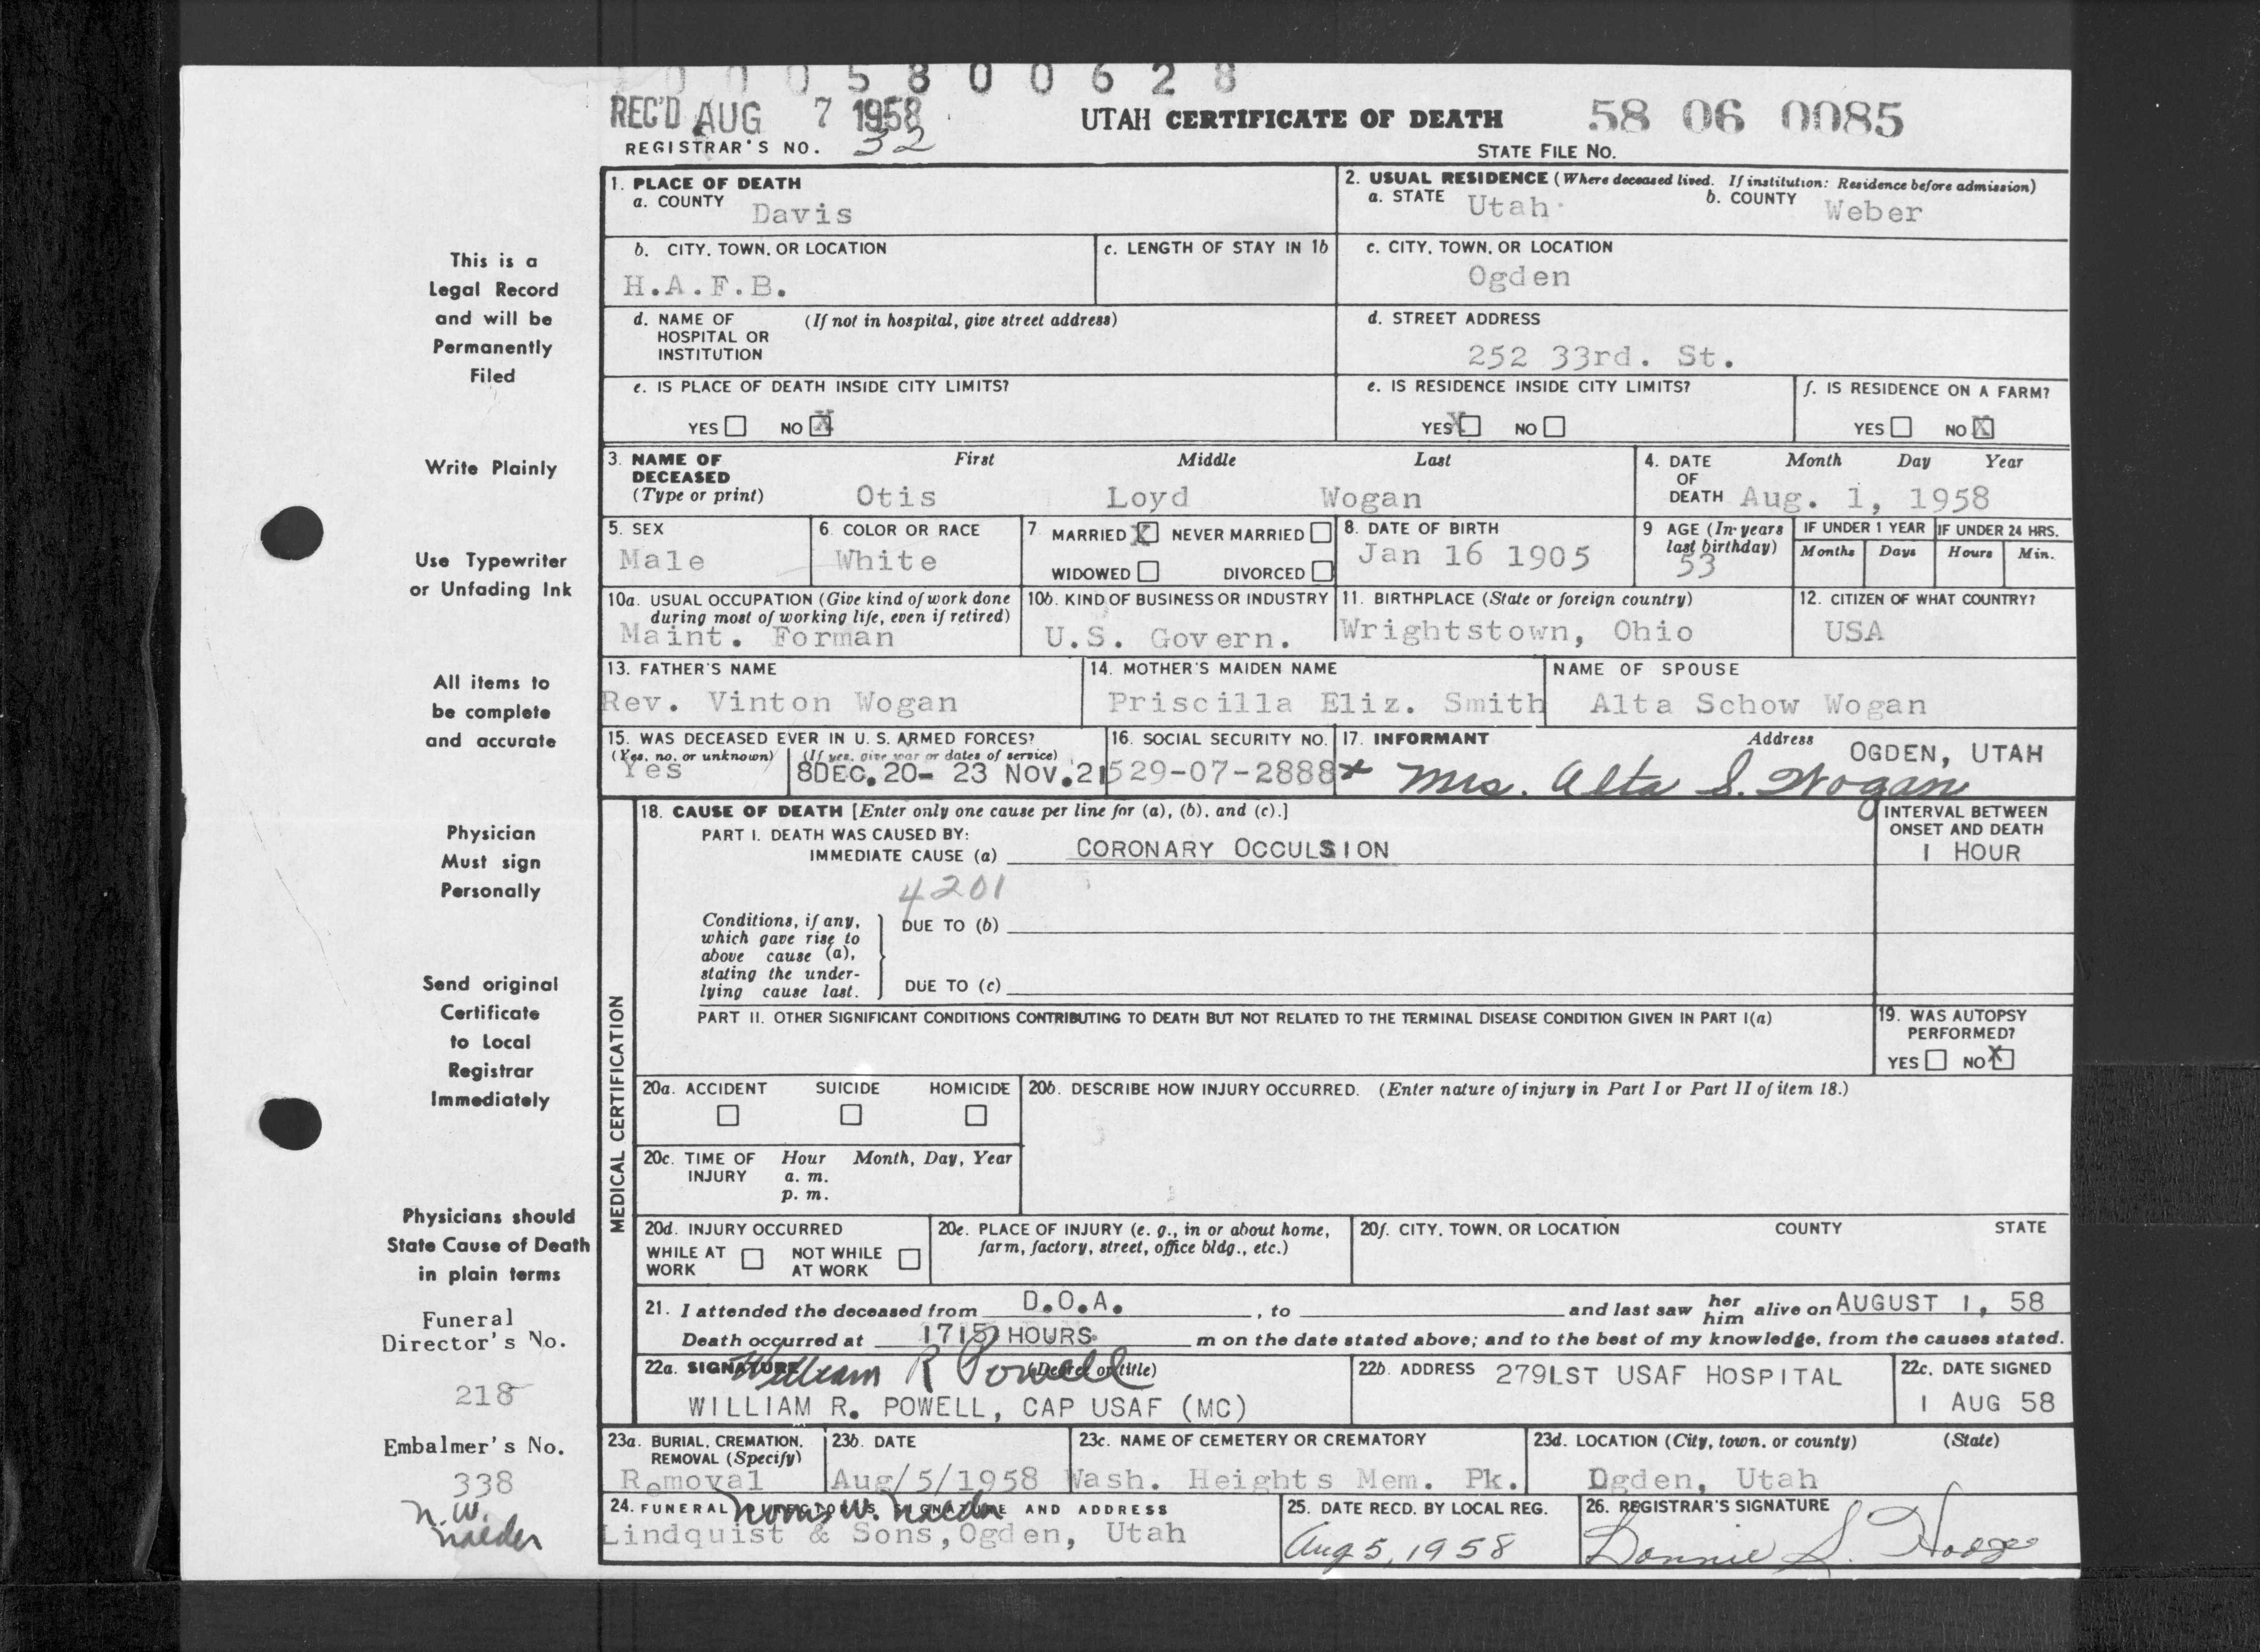 0 0 0 5 8 0 0 6 2 8
REC'D AUG 7 1958
UTAH CERTIFICATE OF DEATH 58 06 0085
REGISTRAR'S NO. 32
STATE FILE NO.
This is a
Legal Record
and will be
Permanently
Filed
Write Plainly
Use Typewriter
or Unfading Ink
All items to
be complete
and accurate
Physician
Must sign
Personally
Send original
Certificate
to Local
Registrar
Immediately
Physicians should
State Cause of Death
in plain terms
Funeral
Director's No.
218
Embalmer's No.
338
N. W.
1. PLACE OF DEATH
a. COUNTY Davis
2. USUAL RESIDENCE (Where deceased lived. If institution: Residence before admission)
a. STATE Utah b. COUNTY Weber
b. CITY, TOWN, OR LOCATION
H.A.F.B.
c. LENGTH OF STAY IN 1b
c. CITY, TOWN, OR LOCATION
Ogden
d. NAME OF (If not in hospital, give street address)
HOSPITAL OR
INSTITUTION
d. STREET ADDRESS
252 33rd. St.
e. IS PLACE OF DEATH INSIDE CITY LIMITS?
YES NO X
e. IS RESIDENCE INSIDE CITY LIMITS?
YES X NO
f. IS RESIDENCE ON A FARM?
YES NO X
3. NAME OF DECEASED (Type or print) First Middle Last
Otis Loyd Wogan
4. DATE OF DEATH Month Day Year
Aug. 1, 1958
5. SEX
Male
6. COLOR OR RACE
White
7. MARRIED X NEVER MARRIED
WIDOWED DIVORCED
8. DATE OF BIRTH
Jan 16 1905
9 AGE (In years
last birthday)
53
IF UNDER 1 YEAR IF UNDER 24 HRS.
Months Days Hours Min.
10a. USUAL OCCUPATION (Give kind of work done
during most of working life, even if retired)
Maint. Forman
10b. KIND OF BUSINESS OR INDUSTRY
U.S. Govern.
11. BIRTHPLACE (State or foreign country)
Wrightstown, Ohio
12. CITIZEN OF WHAT COUNTRY?
USA
13. FATHER'S NAME
Rev. Vinton Wogan
14. MOTHER'S MAIDEN NAME
Priscilla Eliz. Smith
NAME OF SPOUSE
Alta Schow Wogan
15. WAS DECEASED EVER IN U. S. ARMED FORCES?
(Yes, no, or unknown) (If yes, give war or dates of service)
Yes 8DEC.20- 23 NOV.21
16. SOCIAL SECURITY NO.
529-07-2888
17. INFORMANT Address OGDEN, UTAH
x Mrs. Alta S. Wogan
MEDICAL CERTIFICATION
18. CAUSE OF DEATH [Enter only one cause per line for (a), (b), and (c).]
PART I. DEATH WAS CAUSED BY:
IMMEDIATE CAUSE (a) CORONARY OCCULSION
INTERVAL BETWEEN
ONSET AND DEATH
1 HOUR
4201
Conditions, if any,
which gave rise to
above cause (a),
stating the under-
lying cause last.
DUE TO (b)
DUE TO (c)
PART II. OTHER SIGNIFICANT CONDITIONS CONTRIBUTING TO DEATH BUT NOT RELATED TO THE TERMINAL DISEASE CONDITION GIVEN IN PART I(a)
19. WAS AUTOPSY
PERFORMED?
YES NO X
20a. ACCIDENT SUICIDE HOMICIDE
20b. DESCRIBE HOW INJURY OCCURRED. (Enter nature of injury in Part I or Part II of item 18.)
20c. TIME OF INJURY Hour Month, Day, Year
a. m.
p. m.
20d. INJURY OCCURRED
WHILE AT WORK NOT WHILE AT WORK
20e. PLACE OF INJURY (e. g., in or about home,
farm, factory, street, office bldg., etc.)
20f. CITY, TOWN, OR LOCATION COUNTY STATE
21. I attended the deceased from D.O.A. , to and last saw her him alive on AUGUST 1, 58
Death occurred at 1715 HOURS m on the date stated above; and to the best of my knowledge, from the causes stated.
22a. SIGNATURE (Degree or title)
William R Powell
WILLIAM R. POWELL, CAP USAF (MC)
22b. ADDRESS 279LST USAF HOSPITAL
22c. DATE SIGNED
1 AUG 58
23a. BURIAL, CREMATION,
REMOVAL (Specify)
Removal
23b. DATE
Aug/5/1958
23c. NAME OF CEMETERY OR CREMATORY
Wash. Heights Mem. Pk.
23d. LOCATION (City, town, or county) (State)
Ogden, Utah
24. FUNERAL DIRECTOR'S SIGNATURE AND ADDRESS
Lindquist & Sons, Ogden, Utah
25. DATE RECD. BY LOCAL REG.
Aug 5, 1958
26. REGISTRAR'S SIGNATURE